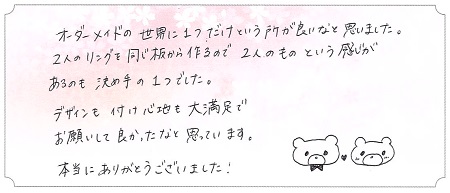 オーダーメイドの世界に1つだけという所が良いなと思いました。
2人のリングを同じ板から作るので2人のものという感じが
あるのも決め手の1つでした。
デザインも付け心地も大満足で
お願いして良かったなと思っています。
本当にありがとうございました!